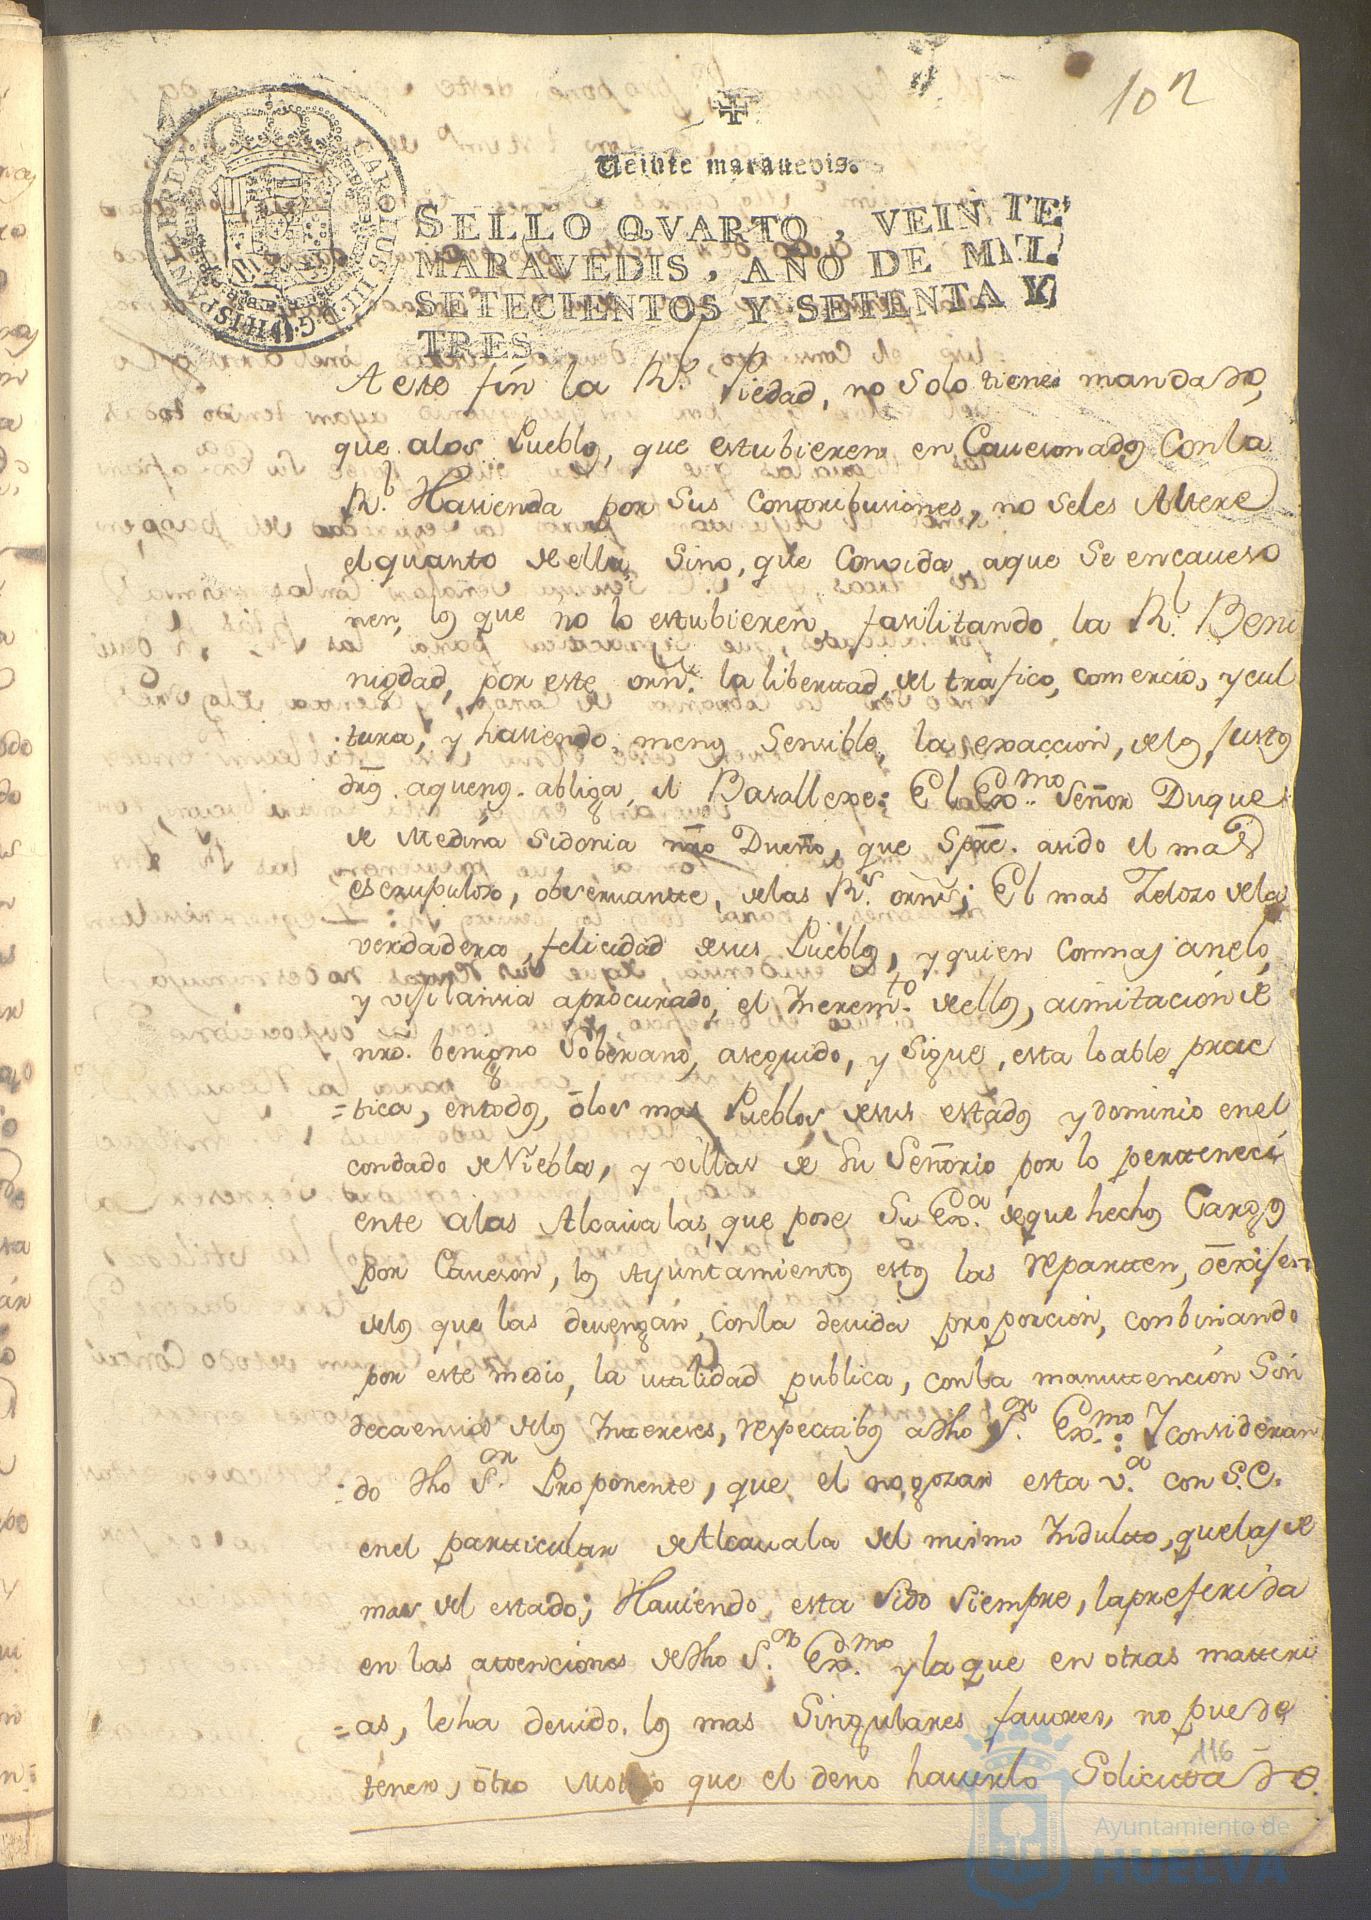 102
Veinte maravedis.
SELLO QVARTO, VEINTE
MARAVEDIS, AÑO DE MIL
SETECIENTOS Y SETENTA Y
TRES.
CAROLUS III D.G. HISPANIAR REX
A este fin la Rl. Piedad, no solo tiene mandado,
que alos Pueblos, que estubieren en Cavesonados Conla
Rl. Hasienda por sus Contribusiones, no seles Altere
el quanto de ella, Sino, que Convida aque se encaveso
nen, los que no lo estubieren, fasilitando la Rl. Beni
nigdad, por este orn. la libertad, del trafico, comercio, y cul
tura, y hasiendo menos Sensible, la exaccion, delos justos
dros. aquenos. abliga, el Basallexe: El Exmo. Señor Duque
de Medina Sidonia nro Dueño, que Spre. asido el mas
escrupuloso, observantte, delas Rs. orns; El mas Zelozo dela
verdadera, felicidad desus Pueblos, y quien Conmas anelo,
y vijilansia aprocurado, el Increm.to deellos, aimitacion de
nro. benigno Soberano, aseguido, y Sigue, esta loable prac
=tica, entodos, ólos mas Pueblos desus estados y dominio enel
condado de Niebla, y villas de Su Señorio por lo perteneci
ente alas Alcavalas, que pose Su Exa. deque hechos Cargos
por Caveson, los Ayuntamientos estos las repartten,
delos que las devengan, Conla devida proporcion, conbinando
por este medio, la utilidad publica, conla manuttencion Sin
decaencia delos Intereses, respectibos adho Sor. Exmo.: Y consideran
=do dho Sor. Proponente, que el no gozar esta v.a con S.E.
enel partticular deAlcavala del mismo Indultto, quelas de
mas del estado; Haviendo, esta Sido Siempre, la preferida
en las attenciones dedho Sor. Exmo y la que en otras matteri
=as, leha devido, los mas Singulares favores, no puede
tener, ótro motibo que el deno haverlo Solicittado
116
Ayuntamiento de
HUELVA